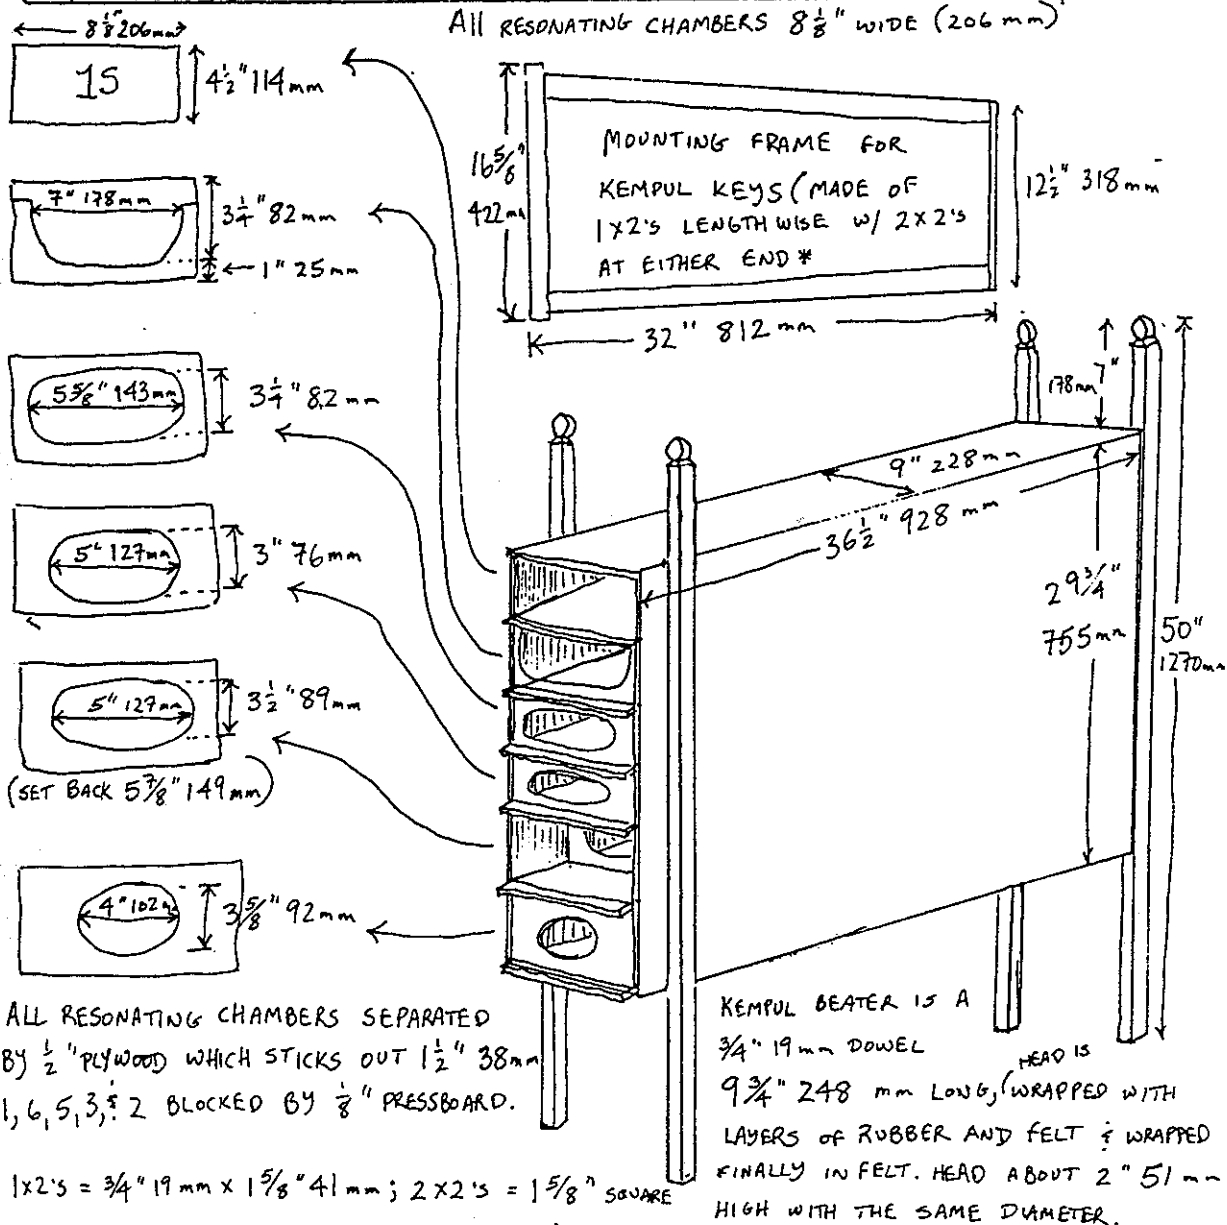 All RESONATING CHAMBERS 8 1/8" WIDE (206 mm)
8 1/8" 206mm
1S
4 1/2" 114mm
7" 178mm
3 1/4" 82mm
1" 25mm
5 5/8" 143mm
3 1/4" 82mm
5" 127mm
3" 76mm
5" 127mm
3 1/2" 89mm
(SET BACK 5 7/8" 149mm)
4" 102m
3 5/8" 92mm
16 5/8"
422mm
MOUNTING FRAME FOR
KEMPUL KEYS (MADE OF
1X2'S LENGTHWISE W/ 2X2'S
AT EITHER END *
12 1/2" 318mm
32" 812mm
178mm 7"
9" 228mm
36 1/2" 928 mm
29 3/4"
755mm
50"
1270mm
ALL RESONATING CHAMBERS SEPARATED
BY 1/2" PLYWOOD WHICH STICKS OUT 1 1/2" 38mm
1, 6, 5, 3, & 2 BLOCKED BY 1/8" PRESSBOARD.
1x2's = 3/4" 19mm x 1 5/8" 41mm; 2x2's = 1 5/8" SQUARE
KEMPUL BEATER IS A
3/4" 19mm DOWEL
9 3/4" 248 mm LONG, (HEAD IS WRAPPED WITH
LAYERS OF RUBBER AND FELT & WRAPPED
FINALLY IN FELT. HEAD ABOUT 2" 51mm
HIGH WITH THE SAME DIAMETER.